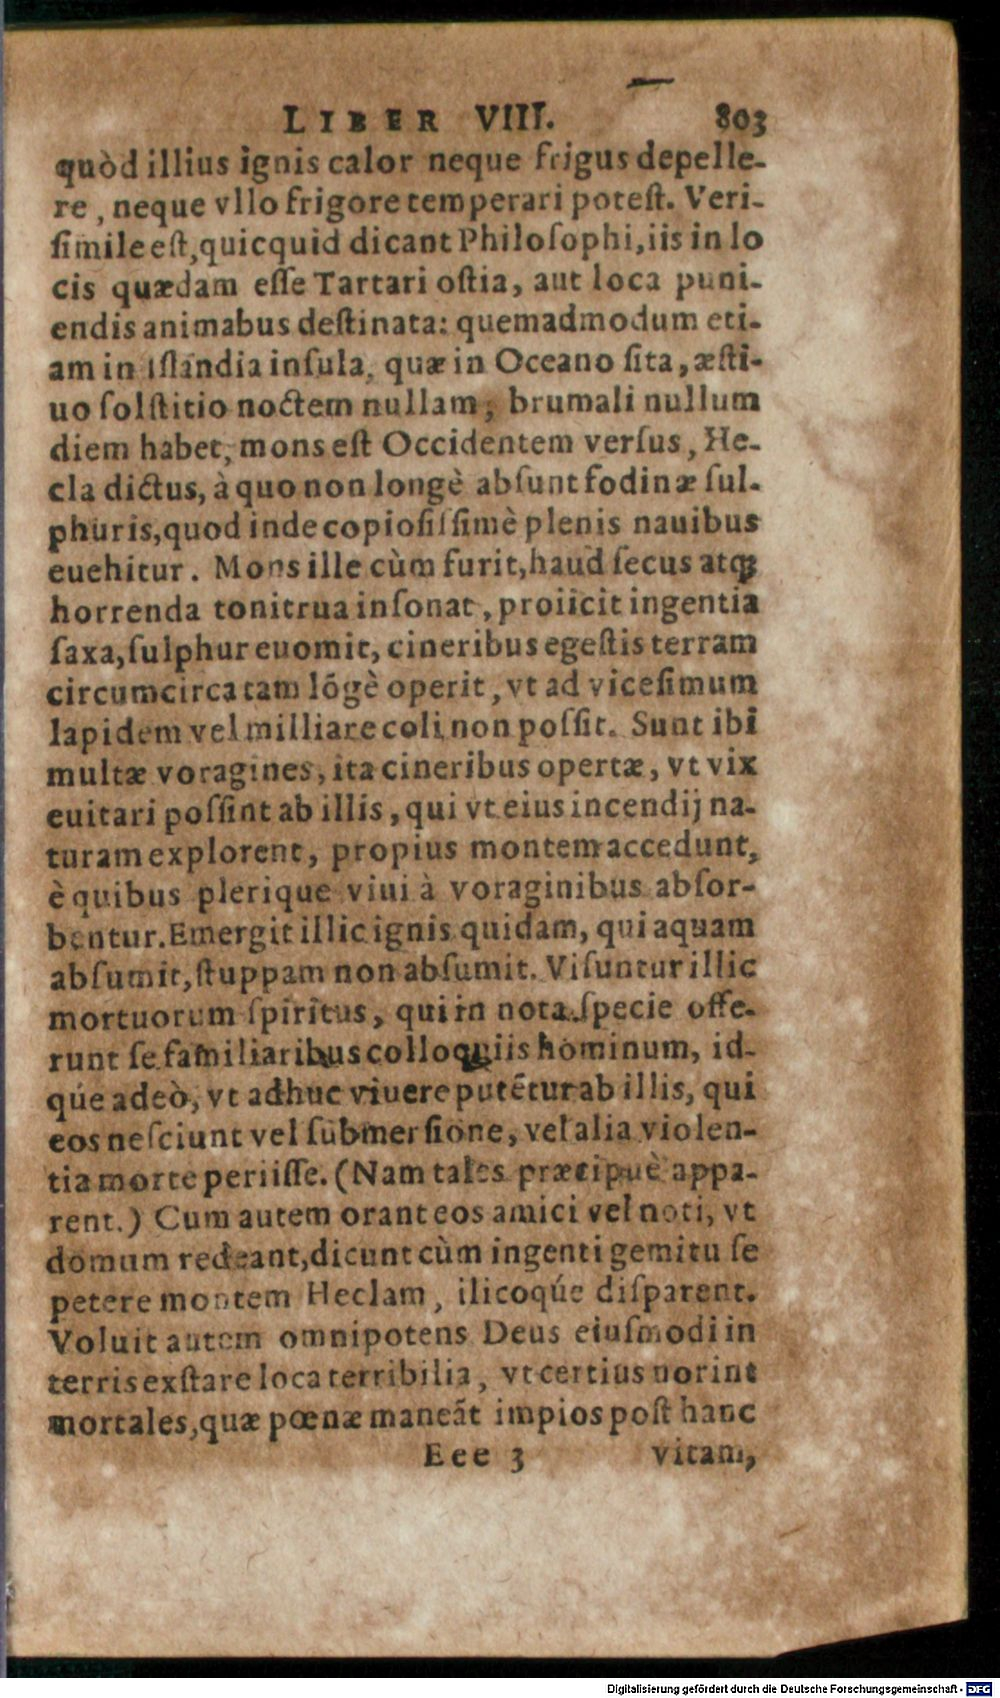 LIBER VIII. 803
quòd illius ignis calor neque frigus depelle-
re, neque vllo frigore temperari poteſt. Veri-
ſimile eſt, quicquid dicant Philoſophi, iis in lo
cis quædam eſſe Tartari oſtia, aut loca puni-
endis animabus deſtinata: quemadmodum eti-
am in Iſlandia inſula, quæ in Oceano ſita, æſti-
uo ſolſtitio noctem nullam, brumali nullum
diem habet, mons eſt Occidentem verſus, He-
cla dictus, à quo non longè abſunt fodinæ ſul-
phuris, quod inde copioſiſſimè plenis nauibus
euehitur. Mons ille cùm furit, haud ſecus atq;
horrenda tonitrua inſonat, proiicit ingentia
ſaxa, ſulphur euomit, cineribus egeſtis terram
circumcirca tam lõgè operit, vt ad viceſimum
lapidem vel milliare coli non poſſit. Sunt ibi
multæ voragines, ita cineribus opertæ, vt vix
euitari poſſint ab illis, qui vt eius incendij na-
turam explorent, propius montem accedunt,
è quibus plerique viui à voraginibus abſor-
bentur. Emergit illic ignis quidam, qui aquam
abſumit, ſtuppam non abſumit. Viſuntur illic
mortuorum ſpiritus, qui in nota ſpecie offe-
runt ſe familiaribus colloquiis hominum, id-
qúe adeò, vt adhuc viuere putẽtur ab illis, qui
eos neſciunt vel ſubmerſione, vel alia violen-
tia morte periiſſe. (Nam tales præcipuè appa-
rent.) Cum autem orant eos amici vel noti, vt
domum redeant, dicunt cùm ingenti gemitu ſe
petere montem Heclam, ilicoqúe diſparent.
Voluit autem omnipotens Deus eiuſmodi in
terris exſtare loca terribilia, vt certius norint
mortales, quæ pœnæ maneãt impios poſt hanc
Eee 3 vitam,
Digitalisierung gefördert durch die Deutsche Forschungsgemeinschaft - DFG